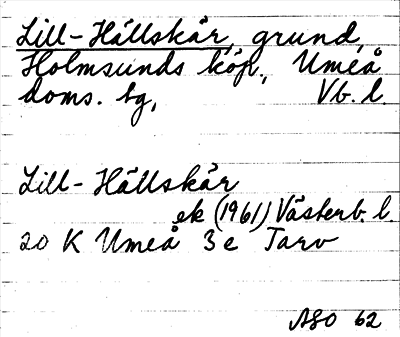 Lill-Hällskär, grund,
Holmsunds köp., Umeå
doms. tg, Vb. l.
Lill-Hällskär
ek (1961) Västerb. l.
20 K Umeå 3e Tarv
ASO 62